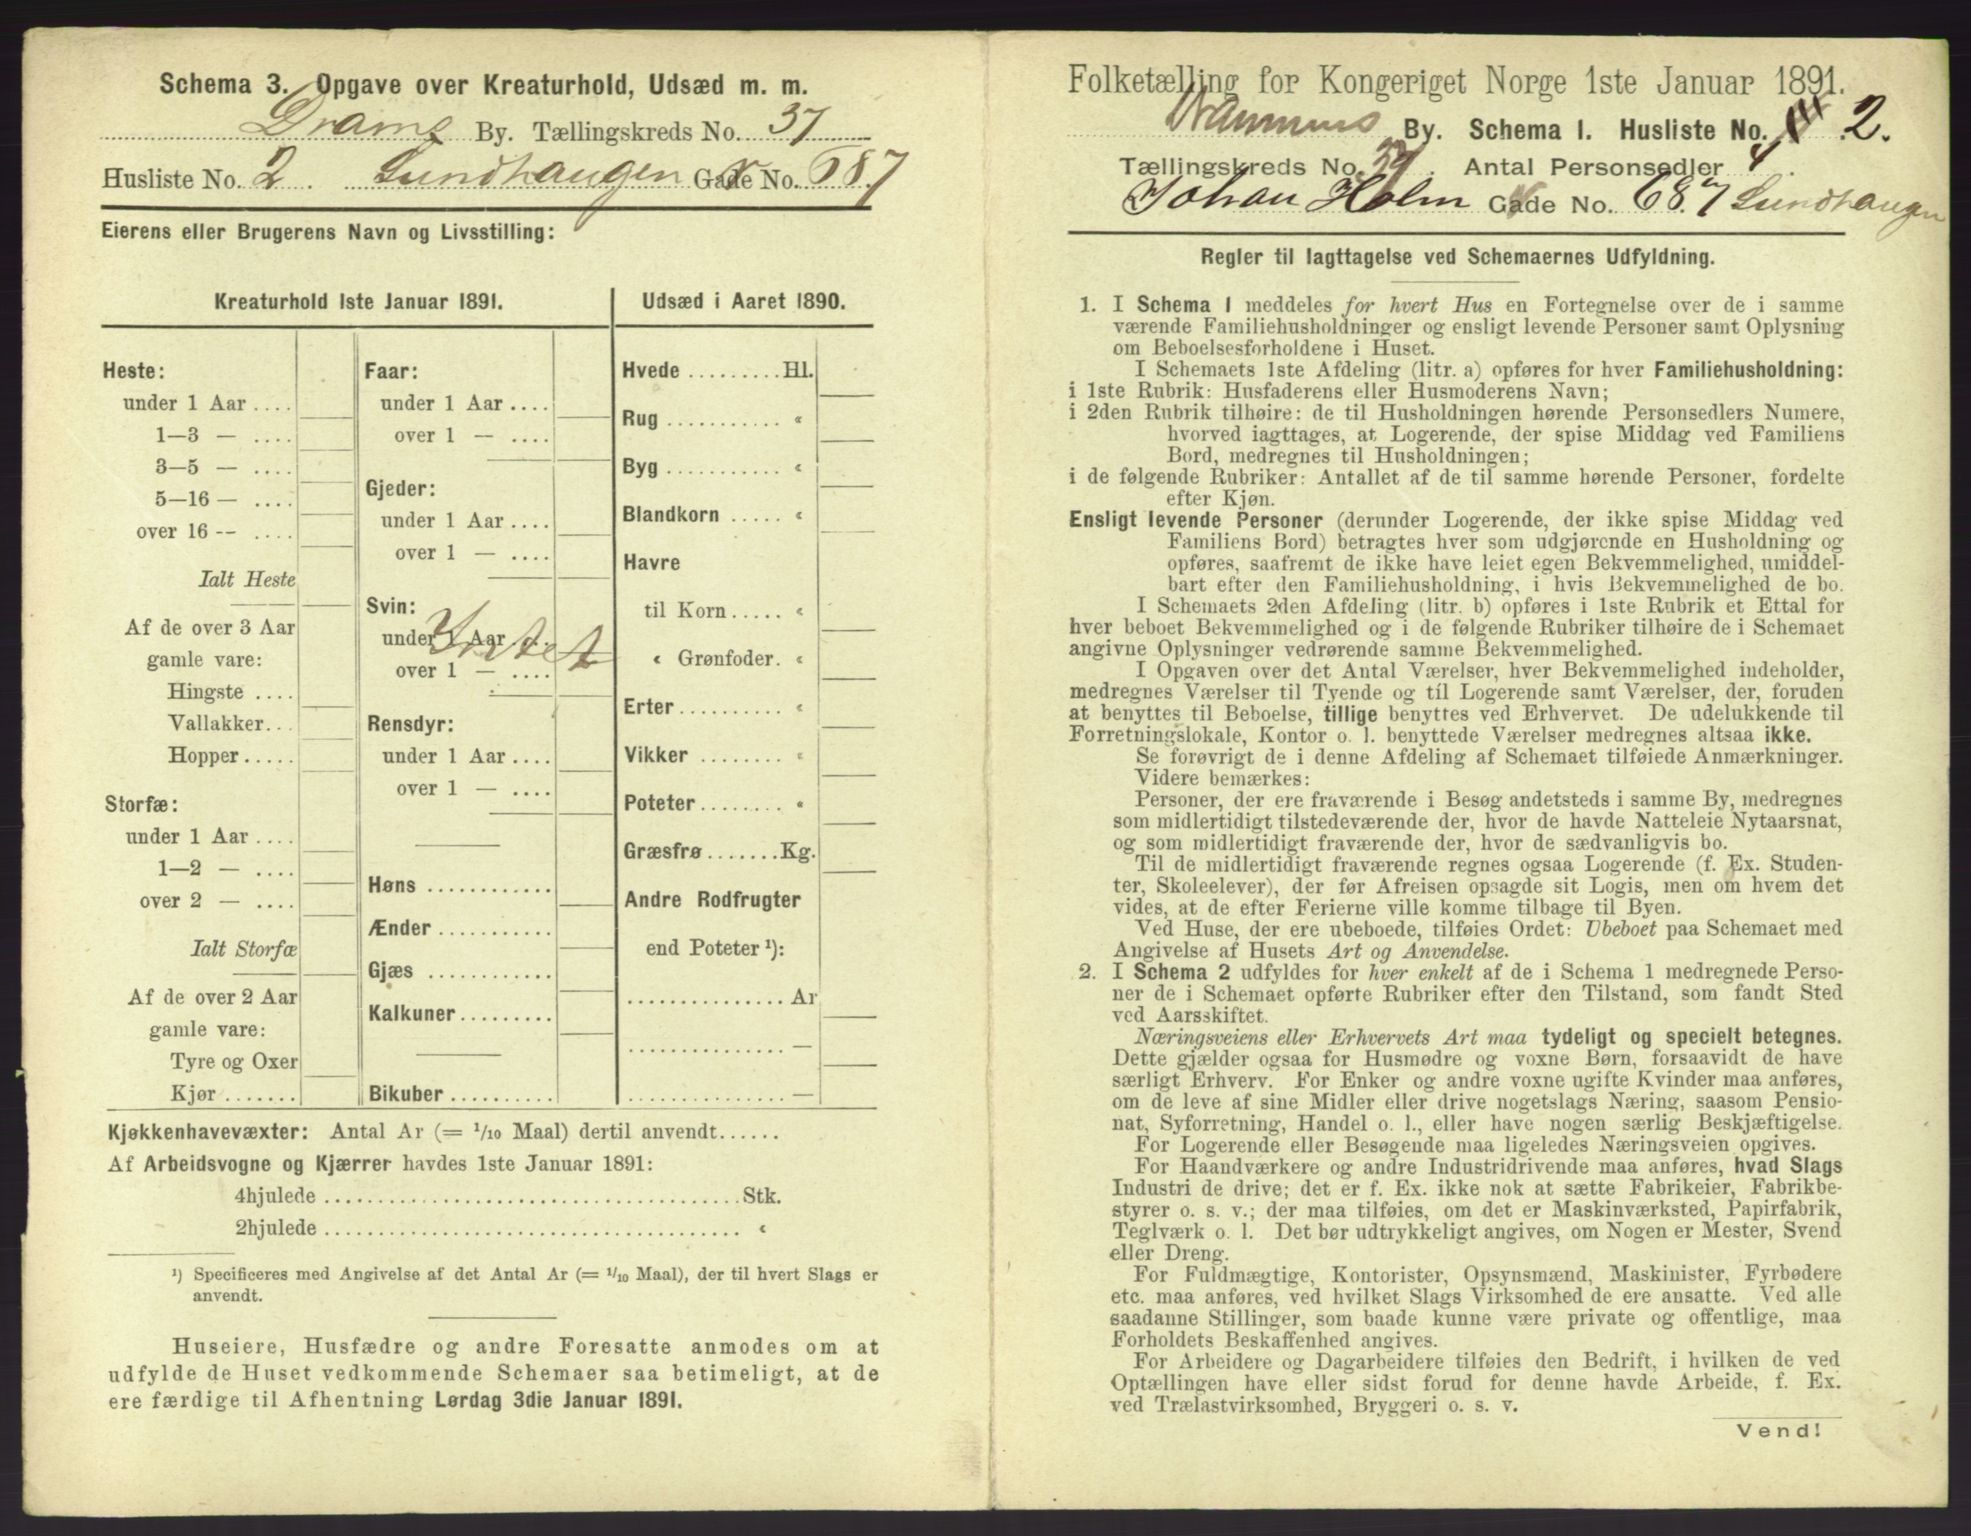 Schema 3. Opgave over Kreaturhold, Udsæd m. m.
Drams By. Tællingskreds No. 37
Husliste No. 2. Sundhaugen Gade No. 687
Eierens eller Brugerens Navn og Livsstilling:
Kreaturhold 1ste Januar 1891.
Heste:
under 1 Aar ....
1—3 — ....
3—5 — ....
5—16 — ....
over 16 -- ....
Ialt Heste
Af de over 3 Aar
gamle vare:
Hingste ....
Vallakker...
Hopper.....
Storfæ:
under 1 Aar ....
1—2 — ....
over 2 — ....
Ialt Storfæ
Af de over 2 Aar
gamle vare:
Tyre og Oxer
Kjør .......
Faar:
under 1 Aar ....
over 1 — ....
Gjeder:
under 1 Aar ....
over 1 — ....
Svin:
under 1 Aar ....
over 1 — ....
Rensdyr:
under 1 Aar ....
over 1 — ....
Høns ............
Ænder ...........
Gjæs ............
Kalkuner.........
Bikuber ..........
Udsæd i Aaret 1890.
Hvede .........Hl.
Rug ........... «
Byg ........... «
Blandkorn ..... «
Havre
til Korn ..... «
« Grønfoder. «
Erter.......... «
Vikker ........ «
Poteter........ «
Græsfrø .......Kg.
Andre Rodfrugter
end Poteter ¹):
............... Ar
............... —
............... —
Kjøkkenhavevæxter: Antal Ar (= 1/10 Maal) dertil anvendt......
Af Arbeidsvogne og Kjærrer havdes 1ste Januar 1891:
4hjulede ....................................... Stk.
2hjulede ....................................... «
¹) Specificeres med Angivelse af det Antal Ar (= 1/10 Maal), der til hvert Slags er
anvendt.
Huseiere, Husfædre og andre Foresatte anmodes om at
udfylde de Huset vedkommende Schemaer saa betimeligt, at de
ere færdige til Afhentning Lørdag 3die Januar 1891.
Folketælling for Kongeriget Norge 1ste Januar 1891.
Drammens By. Schema 1. Husliste No. 2.
Tællingskreds No. 37. Antal Personsedler 4.
Johan Holm Gade No. 687 Sundhaugen
Regler til Iagttagelse ved Schemaernes Udfyldning.
1. I Schema 1 meddeles for hvert Hus en Fortegnelse over de i samme
værende Familiehusholdninger og ensligt levende Personer samt Oplysning
om Beboelsesforholdene i Huset.
I Schemaets 1ste Afdeling (litr. a) opføres for hver Familiehusholdning:
i 1ste Rubrik: Husfaderens eller Husmoderens Navn;
i 2den Rubrik tilhøire: de til Husholdningen hørende Personsedlers Numere,
hvorved iagttages, at Logerende, der spise Middag ved Familiens
Bord, medregnes til Husholdningen;
i de følgende Rubriker: Antallet af de til samme hørende Personer, fordelte
efter Kjøn.
Ensligt levende Personer (derunder Logerende, der ikke spise Middag ved
Familiens Bord) betragtes hver som udgjørende en Husholdning og
opføres, saafremt de ikke have leiet egen Bekvemmelighed, umiddel-
bart efter den Familiehusholdning, i hvis Bekvemmelighed de bo.
I Schemaets 2den Afdeling (litr. b) opføres i 1ste Rubrik et Ettal for
hver beboet Bekvemmelighed og i de følgende Rubriker tilhøire de i Schemaet
angivne Oplysninger vedrørende samme Bekvemmelighed.
I Opgaven over det Antal Værelser, hver Bekvemmelighed indeholder,
medregnes Værelser til Tyende og til Logerende samt Værelser, der, foruden
at benyttes til Beboelse, tillige benyttes ved Erhvervet. De udelukkende til
Forretningslokale, Kontor o. l. benyttede Værelser medregnes altsaa ikke.
Se forøvrigt de i denne Afdeling af Schemaet tilføiede Anmærkninger.
Videre bemærkes:
Personer, der ere fraværende i Besøg andetsteds i samme By, medregnes
som midlertidigt tilstedeværende der, hvor de havde Natteleie Nytaarsnat,
og som midlertidigt fraværende der, hvor de sædvanligvis bo.
Til de midlertidigt fraværende regnes ogsaa Logerende (f. Ex. Studen-
ter, Skoleelever), der før Afreisen opsagde sit Logis, men om hvem det
vides, at de efter Ferierne ville komme tilbage til Byen.
Ved Huse, der ere ubeboede, tilføies Ordet: Ubeboet paa Schemaet med
Angivelse af Husets Art og Anvendelse.
2. I Schema 2 udfyldes for hver enkelt af de i Schema 1 medregnede Perso-
ner de i Schemaet opførte Rubriker efter den Tilstand, som fandt Sted
ved Aarsskiftet.
Næringsveiens eller Erhvervets Art maa tydeligt og specielt betegnes.
Dette gjælder ogsaa for Husmødre og voxne Børn, forsaavidt de have
særligt Erhverv. For Enker og andre voxne ugifte Kvinder maa anføres,
om de leve af sine Midler eller drive nogetslags Næring, saasom Pensio-
nat, Syforretning, Handel o. l., eller have nogen særlig Beskjæftigelse.
For Logerende eller Besøgende maa ligeledes Næringsveien opgives.
For Haandværkere og andre Industridrivende maa anføres, hvad Slags
Industri de drive; det er f. Ex. ikke nok at sætte Fabrikeier, Fabrikbe-
styrer o. s. v.; der maa tilføies, om det er Maskinværksted, Papirfabrik,
Teglværk o. l. Det bør udtrykkeligt angives, om Nogen er Mester, Svend
eller Dreng.
For Fuldmægtige, Kontorister, Opsynsmænd, Maskinister, Fyrbødere
etc. maa anføres, ved hvilket Slags Virksomhed de ere ansatte. Ved alle
saadanne Stillinger, som baade kunne være private og offentlige, maa
Forholdets Beskaffenhed angives.
For Arbeidere og Dagarbeidere tilføies den Bedrift, i hvilken de ved
Optællingen have eller sidst forud for denne havde Arbeide, f. Ex.
ved Trælastvirksomhed, Bryggeri o. s. v.
Vend!